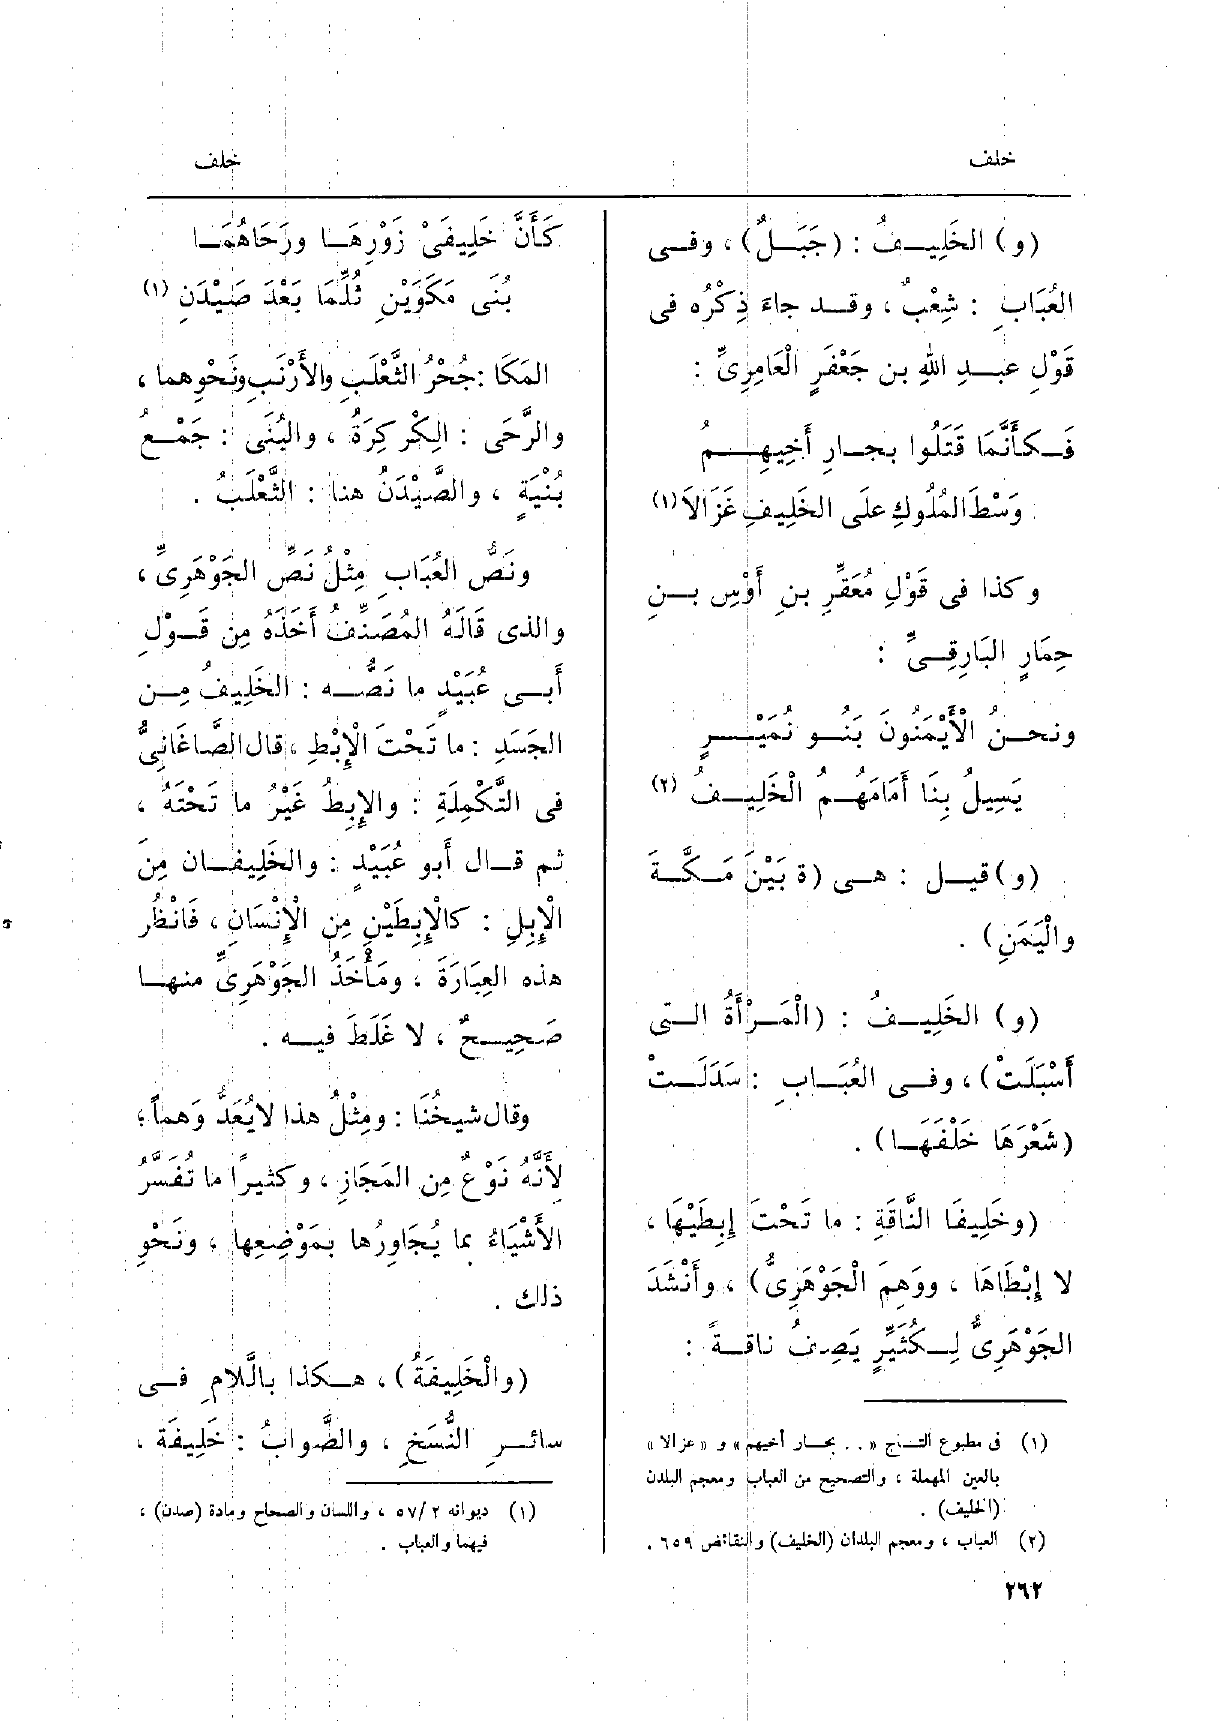 خلف
خلف
(و) الخَلِيـفُ : (جَبَـلٌ) ، وفـى
العُبَابِ : شِعْبٌ ، وقـد جاءَ ذِكْرُه فى
قَوْلِ عبـدِ اللهِ بن جَعْفَرٍ الْعَامِرِىِّ :
فَـكَأَنَّمَا قَتَلُوا بِجـارِ أَخِيهِـمُ
وَسْطَ المُلُوكِ علَى الخَلِيفِ غَزَالاَ (١)
وكذا فى قَوْلِ مُعَقِّرِ بنِ أَوْسِ بـنِ
حِمَارٍ البَارِقِـىِّ :
ونحـنُ الْأَيْمَنُونَ بَنُـو نُمَيْـرٍ
يَسِيلُ بِنَا أَمَامَهُـمُ الْخَلِيـفُ (٢)
(و) قيـل : هـى (ة بَيْنَ مَـكَّـةَ
والْيَمَنِ) .
(و) الخَلِيـفُ : (الْمَـرْأَةُ التـى
أَسْبَلَتْ) ، وفـى العُبَـابِ : سَدَلَـتْ
(شَعْرَهَا خَلْفَهَـا) .
(وخَلِيفَا النَّاقَةِ : ما تَحْتَ إِبِطَيْهَا ،
لا إِبْطَاهَا ، ووَهِمَ الْجَوْهَرِىُّ) ، وأَنْشَدَ
الجَوْهَرِىُّ لِـكُثَيِّرٍ يَصِـفُ ناقـةً :
(١) فى مطبوع التـاج « . . بحـار أخيهم » و « عزالا »
بالعين المهملة ، والتصحيح من العباب ومعجم البلدن
(الخليف) .
(٢) العباب ، ومعجم البلدان (الخليف) والنقائض ٦٥٩ .
٢٦٢
كَأَنَّ خَلِيفَىْ زَوْرِهَـا ورَحَاهُمَـا
بُنَى مَكَوَيْنِ ثُلِّمَا بَعْدَ صَيْدَنِ (١)
المَكَا : جُحْرُ الثَّعْلَبِ والأَرْنَبِ ونَحْوِهما ،
والرَّحَى : الكِرْكِرَةُ ، والبُنَى : جَمْـعُ
بُنْيَةٍ ، والصَّيْدَنُ هنا : الثَّعْلَبُ .
ونَصُّ العُبَابِ مِثْلُ نَصِّ الجَوْهَرِىِّ ،
والذى قَالَهُ المُصَنِّفُ أَخَذَهُ مِن قَـوْلِ
أَبـى عُبَيْدٍ ما نَصُّـه : الخَلِيفُ مِـن
الجَسَدِ : ما تَحْتَ الإِبْطِ ، قال الصَّاغَانِىُّ
فى التَّكْمِلَةِ : والإِبِطُ غَيْرُ ما تَحْتَهُ ،
ثم قـال أَبو عُبَيْدٍ : والخَلِيفَـان مِنَ
الْإِبِلِ : كالْإِبِطَيْنِ مِن الْإِنْسَانِ ، فَانْظُر
هذه العِبَارَةَ ، ومَأْخَذُ الجَوْهَرِىِّ منهـا
صَحِيـحٌ ، لا غَلَطَ فيـه .
وقال شيخُنَا : ومِثْلُ هذا لايُعَدُّ وَهماً ؛
لِأَنَّهُ نَوْعٌ مِن المَجَازِ ، وكثيرًا ما تُفَسَّرُ
الأَشْيَاءُ بما يُجَاوِرُها بمَوْضِعِها ، ونَحْوِ
ذلك .
(والْخَلِيفَةُ) ، هـكذا بالَّلامِ فـى
سائـرِ النُّسَخِ ، والصَّوابُ : خَلِيفَة ،
(١) ديوانه ٥٧/٢ ، واللسان والصحاح ومادة (صدن) ،
فيهما والعباب .